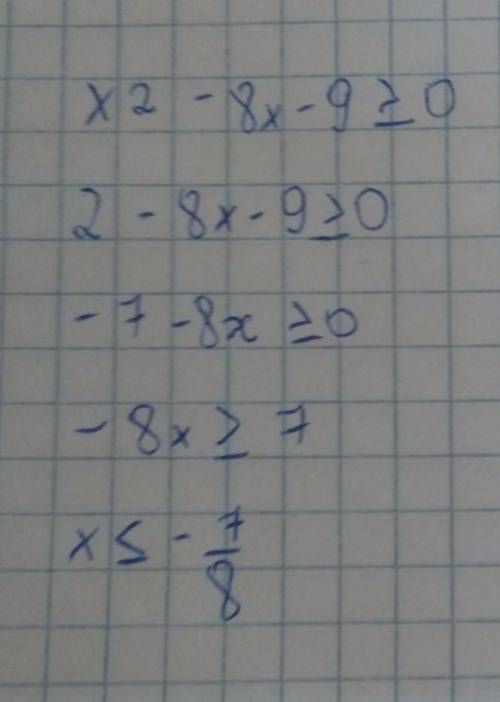 x2 - 8x - 9 ≥ 0
2 - 8x - 9 ≥ 0
-7 - 8x ≥ 0
- 8x ≥ 7
x ≤ - 7/8